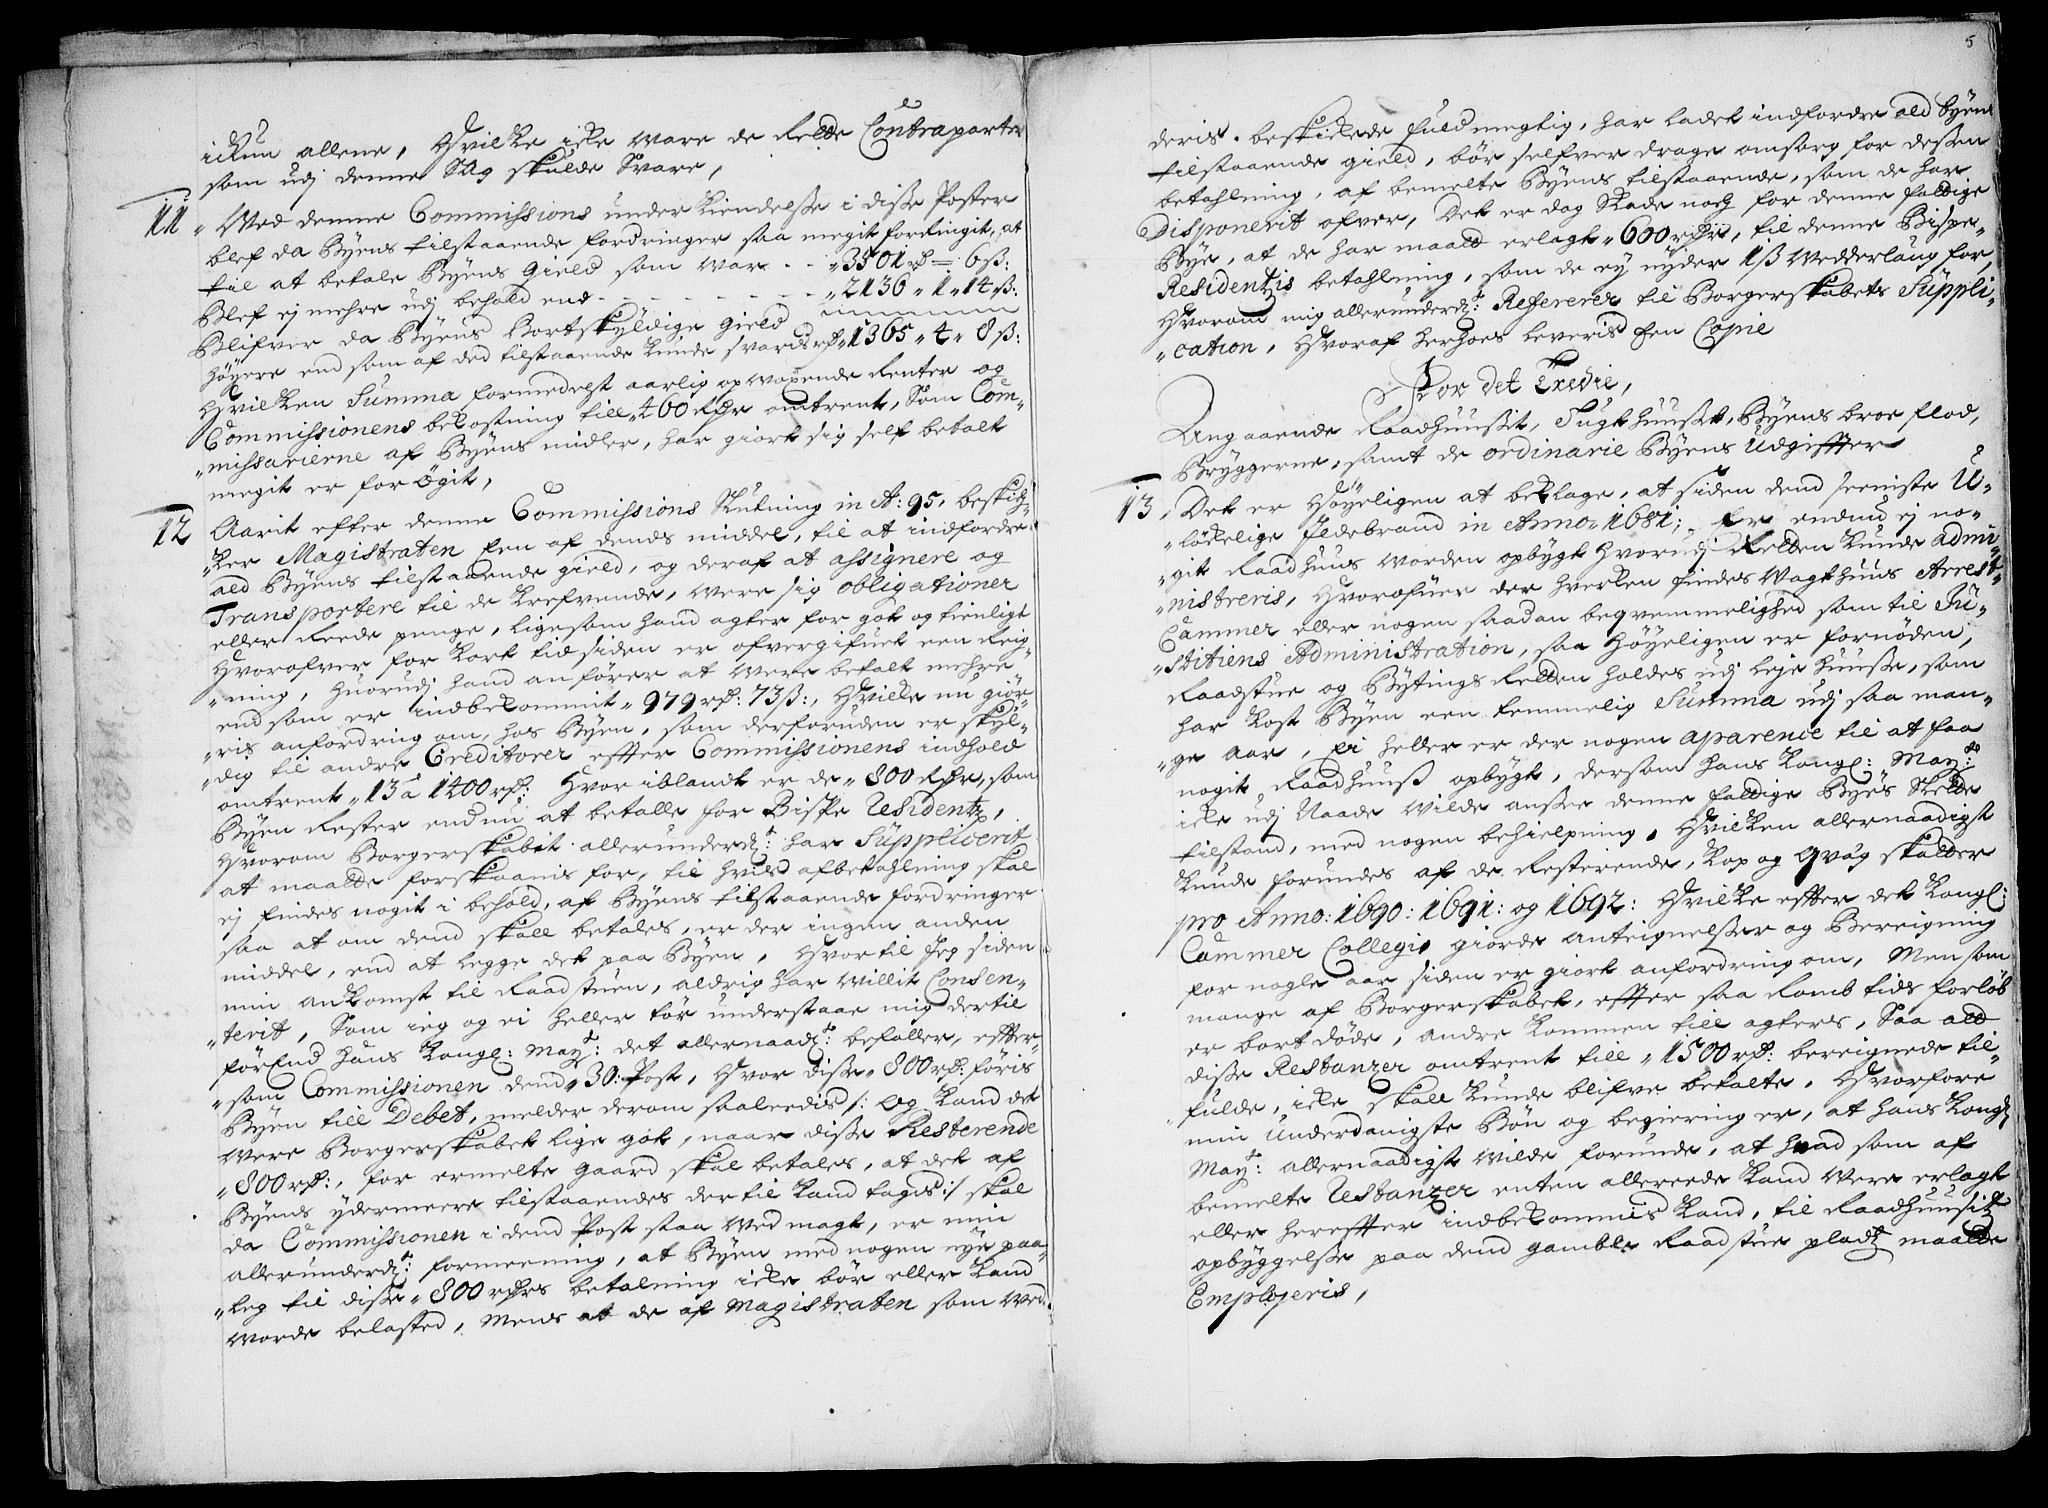 ickun allene, Hvilke icke ware de Rette Contraparter
som udj denne Sag skulde Svare,
11 „ Wed denne Commissions underkiendelsse i disse Poster
blef da Byens tilstaaende fordringer saa megit forringit, at
til at betale Byens Gield som war - - „3501 rd = 6 ß:
Blef ej mehre udj behold end - - - - - - „2136 „ 1 „ 14 ß:
Blifver da Byens bortskyldige gield rd „1365 „ 4 „ 8 ß:
høyere end som af ded tilstaaende kunde svaris
Hvilken Summa formedelst aarlig opwoxende Renter og
Commissionens bekostning till „460 Rdr omtrent, Som Com-
„missarierne af Byens midler, har giort sig self betalt
megit er forøgit,
12 Aarit efter denne Commissions Slutning in A: 95, beskich-
„ker Magistraten Een af dends middel, til at indfordre
ald Byens tilstaaende gield, og deraf at assignere og
Transportere til de krefvende, were sig obligationer
eller Reede penge, ligesom hand agter for got og tienligt
Hvorofver for kort tid siden er ofvergifuet een Reig-
„ning, huorudj hand anfører at were betalt mehre
end som er indbekommit „979 rd: 73 ß:, Hvilke nu giø-
„ris anfordring om, hos Byen, som derforuden er skyl-
„dig til andre Creditorer effter Commissionens indhold
omtrent „13 à 1400 rd: Hvor iblandt er de „800 Rdr, som
Byen Rester endnu at betalle for Bispe Residentz,
Hvorom Borgerskabet allerunderd: har Supplicerit
at maatte forskaanis for, til hvis afbetahling skal
ej findes nogit i behold, af Byens tilstaaende fordringer
saa at om dend skall betales, er der ingen anden
middel, end at legge det paa Byen, Hvortil Jeg siden
min ankomst til Raadstuen, aldrig har willit Consen-
„terit, Som ieg og ei heller tør understaae mig dertil
førEnd Hans Kongl: May:t det allernaad: befaller, efter-
„som Commissionen dend „30: Post, Hvor disse „800 rd: føris
Byen till Debet, melder derom saaledis /: og kand det
were Borgerskabet lige got, naar disse Resterende
„800 rd:, for ermelte gaard skal betales, at det af
Byens ydermeere tilstaaendes dertil kand tages :/ skal
da Commissionen i dend Post staa wed magt, er min
allerunderd: formeening, at Byen med nogen nye paa-
„leg til disse „800 rdrs betalning icke bør eller kand
worde belasted, Mens at de af Magistraten som wed
5
deris beskickede fuldmegtig, har ladet indfordre ald Byens
tilstaaende gield, bør selfver drage omsorg for dessen
betahling, af bemelte Byens tilstaaende, som de har
Disponerit ofver, Det er dog Skade nock for denne fattige
Bye, at de har maatt erlagt „600 rdr, til denne Bispe-
Residentzis betahling, som de ej nyder 1 ß wedderlaug for,
Hvorom mig allerunderd: Refererer til Borgerskabets Suppli-
„cation, Hvoraf herhoes leveris Een Copie
For det Tredie,
Angaaende Raadhuusset, Tugthuusset, Byens broe flod,
Bryggerne, samt de ordinarie Byens Udgiffter
13, Det er høyeligen at beklage, at siden dend seeniste U-
„løckelige Jldebrand in Anno 1681; Er endnu ej no-
„git Raadhuus worden opbygt hvorudj Retten kunde admi-
„nistreris, Hvorofuer der hverken findes Wagthuus Arrest-
Cammer eller nogen saadan beqvemmelighed som til Ju-
„stitiens Administration, saa høyeligen er fornøden,
Raadstue og Bytings Retten holdes udj leje huusse, som
har kost Byen een temmelig Summa udj saa man-
„ge Aar, Ei heller er der nogen aparence til at faa
nogit Raadhuuss opbygt, dersom Hans Kongl: May:tt
icke udj Naade wilde ansee denne fattige Byes slette
tilstand, med nogen behielpning, Hvilken allernaadigst
kunde forundes af de Resterende, Kop og Qvæg skatter
pro Anno: 1690: 1691: og 1692: Hvilke effter det Kongl:
Cammer Collegij giorde antegnelsser og Beregning
for nogle aar siden er giort anfordring om, Men som
mange af Borgerskabet, effter saa Romb tids forløb
er bort døde, andre kommen till agters, Saa ald
disse Restanzer omtrent till „1500 rd: bereignede til-
fulde, icke skall kunde blifve betalte, Hvorfore
min Underdanigste Bøn og begiering er, at Hans Kongl:
May:t allernaadigst wilde forunde, at hvad som af
bemelte Restanzer enten allereede kand were erlagt
eller hereffter indbekommis kand, til Raadhuusits
opbyggelsse paa dend gamble Raadstue pladtz maatte
Employeris,